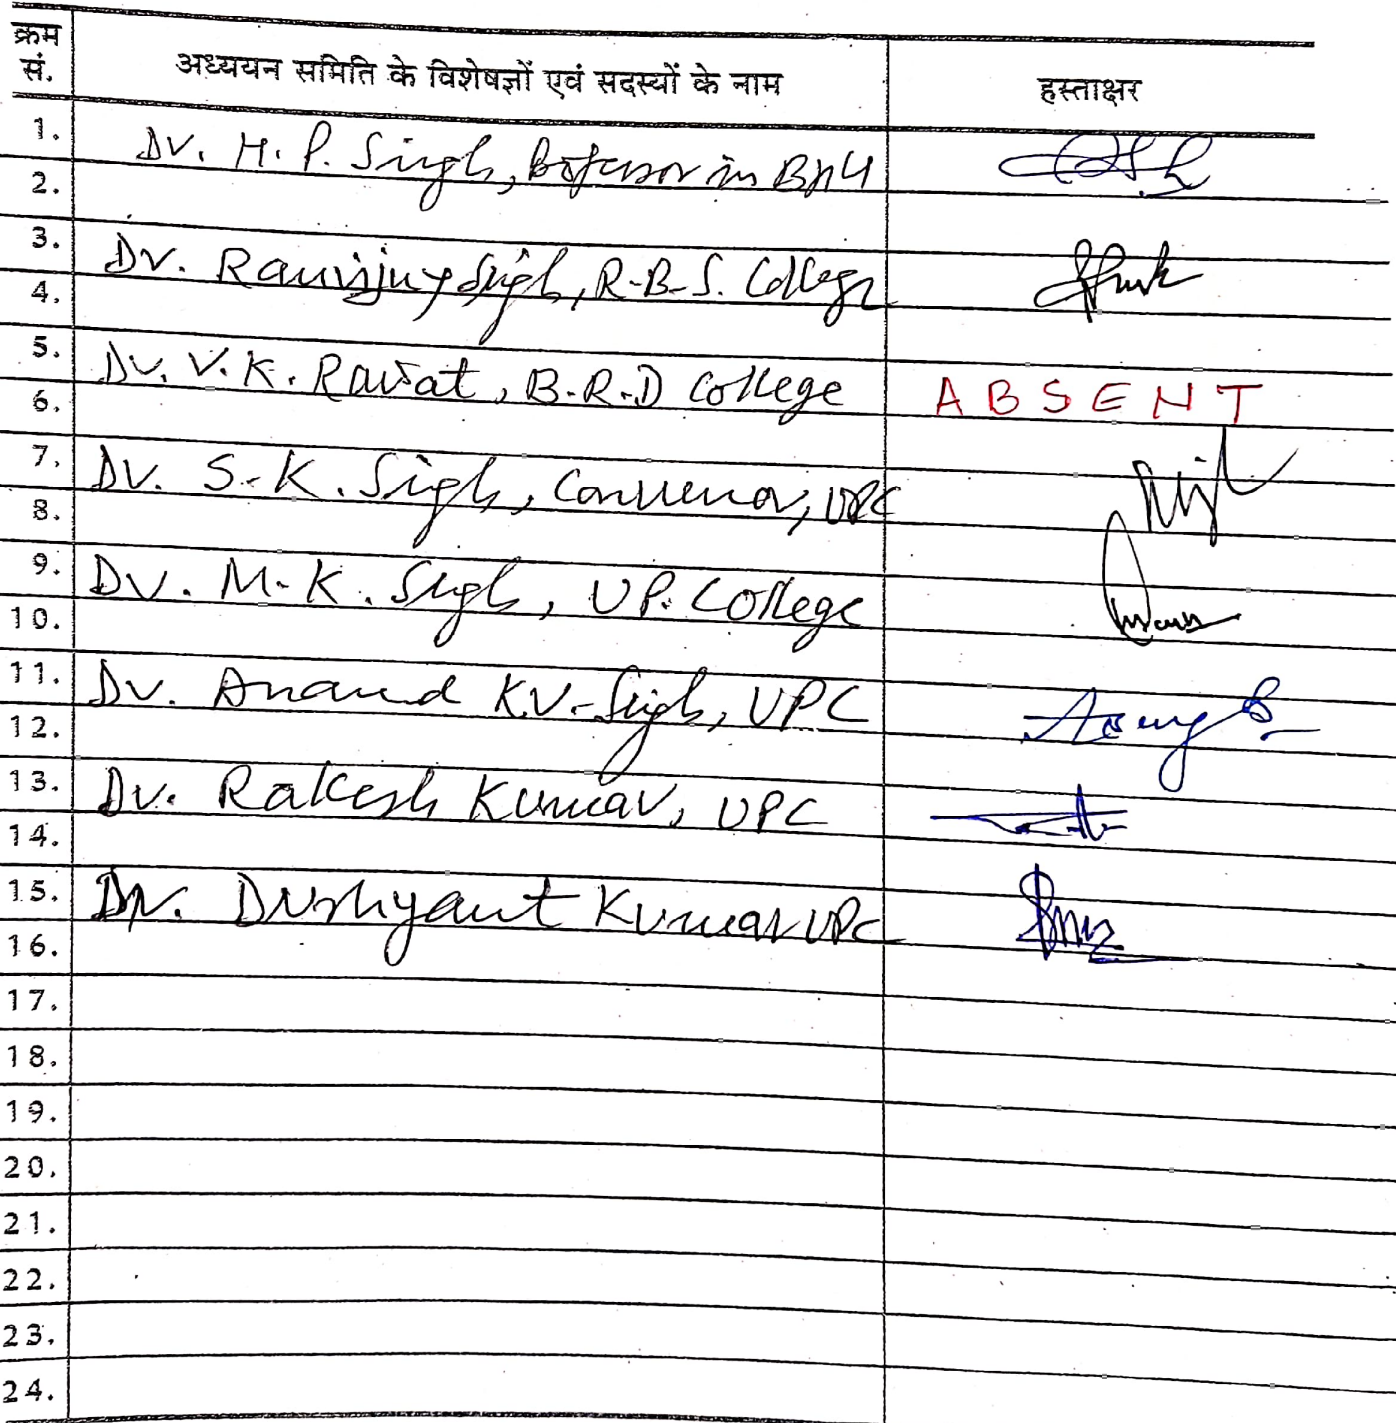 क्रम सं. अध्ययन समिति के विशेषज्ञों एवं सदस्यों के नाम हस्ताक्षर
1. Dr. H. P. Singh, Professor in BHU
2.
3. Dr. Ranvijay Singh, R.B.S. College
4.
5. Dr. V. K. Rawat, B.R.D College ABSENT
6.
7. Dr. S.K. Singh, Convenor, UPC
8.
9. Dr. M.K. Singh, UP. College
10.
11. Dr. Anand Kr. Singh, UPC
12.
13. Dr. Rakesh Kumar, UPC
14.
15. Dr. Dushyant Kumar UPC
16.
17.
18.
19.
20.
21.
22.
23.
24.